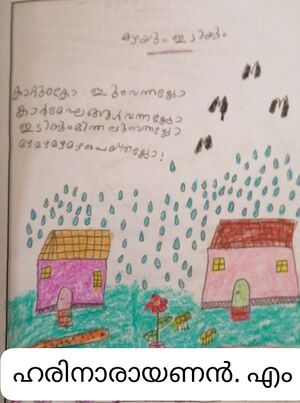 മഴയും ഇടിയും
കാറ്റും വന്നല്ലോ
കാർമേഘങ്ങൾ വന്നല്ലോ
ഇടിയും മിന്നലും വന്നല്ലോ
മഴ മഴ മഴ പെയ്തല്ലോ!
ഹരിനാരായണൻ. എം